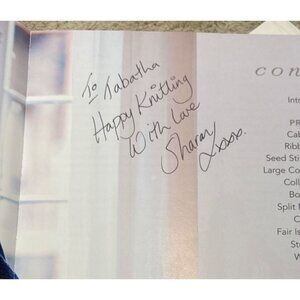 To Tabatha
Happy Knitting
With Love
Sharon xxxx.
con
Int
PR
Cab
Ribb
Seed Stit
Large Co
Coll
Bo
Split
C
Fair Is
St
W